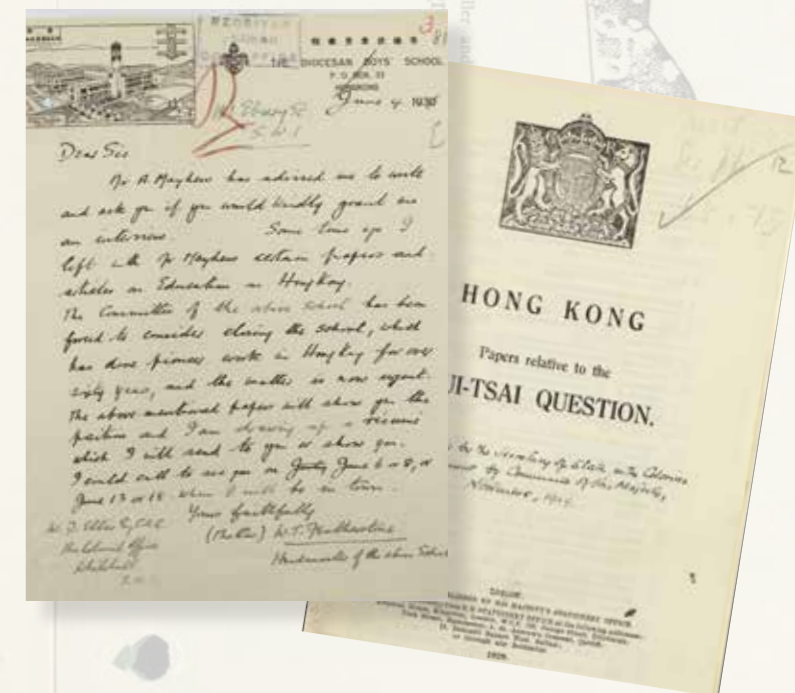 THE DIOCESAN BOYS' SCHOOL
P. O. BOX. 33
HONGKONG
June 4 1930
Ebury St
S.W.1
Dear Sir
Mr A. Mayhew has advised me to write
and ask you if you would kindly grant me
an interview. Some time ago I
left with Mr Mayhew certain papers and
articles on Education in HongKong.
The Committee of the above school has been
forced to consider closing the school, which
has done pioneer work in HongKong for over
sixty years, and the matter is now urgent.
The above mentioned papers will show you the
position and I am drawing up a résumé
which I will send to you or show you.
I could call to see you on June 6 or 8, or
June 13 or 18 when I will be in town.
Yours faithfully
(The Rev) W.T. Featherstone
Headmaster of the above School
The Colonial Office
Whitehall
HONG KONG
Papers relative to the
UI-TSAI QUESTION.
by the Secretary of State for the Colonies
by Command of His Majesty,
November, 1929.
LONDON
HIS MAJESTY'S STATIONERY OFFICE
1929.